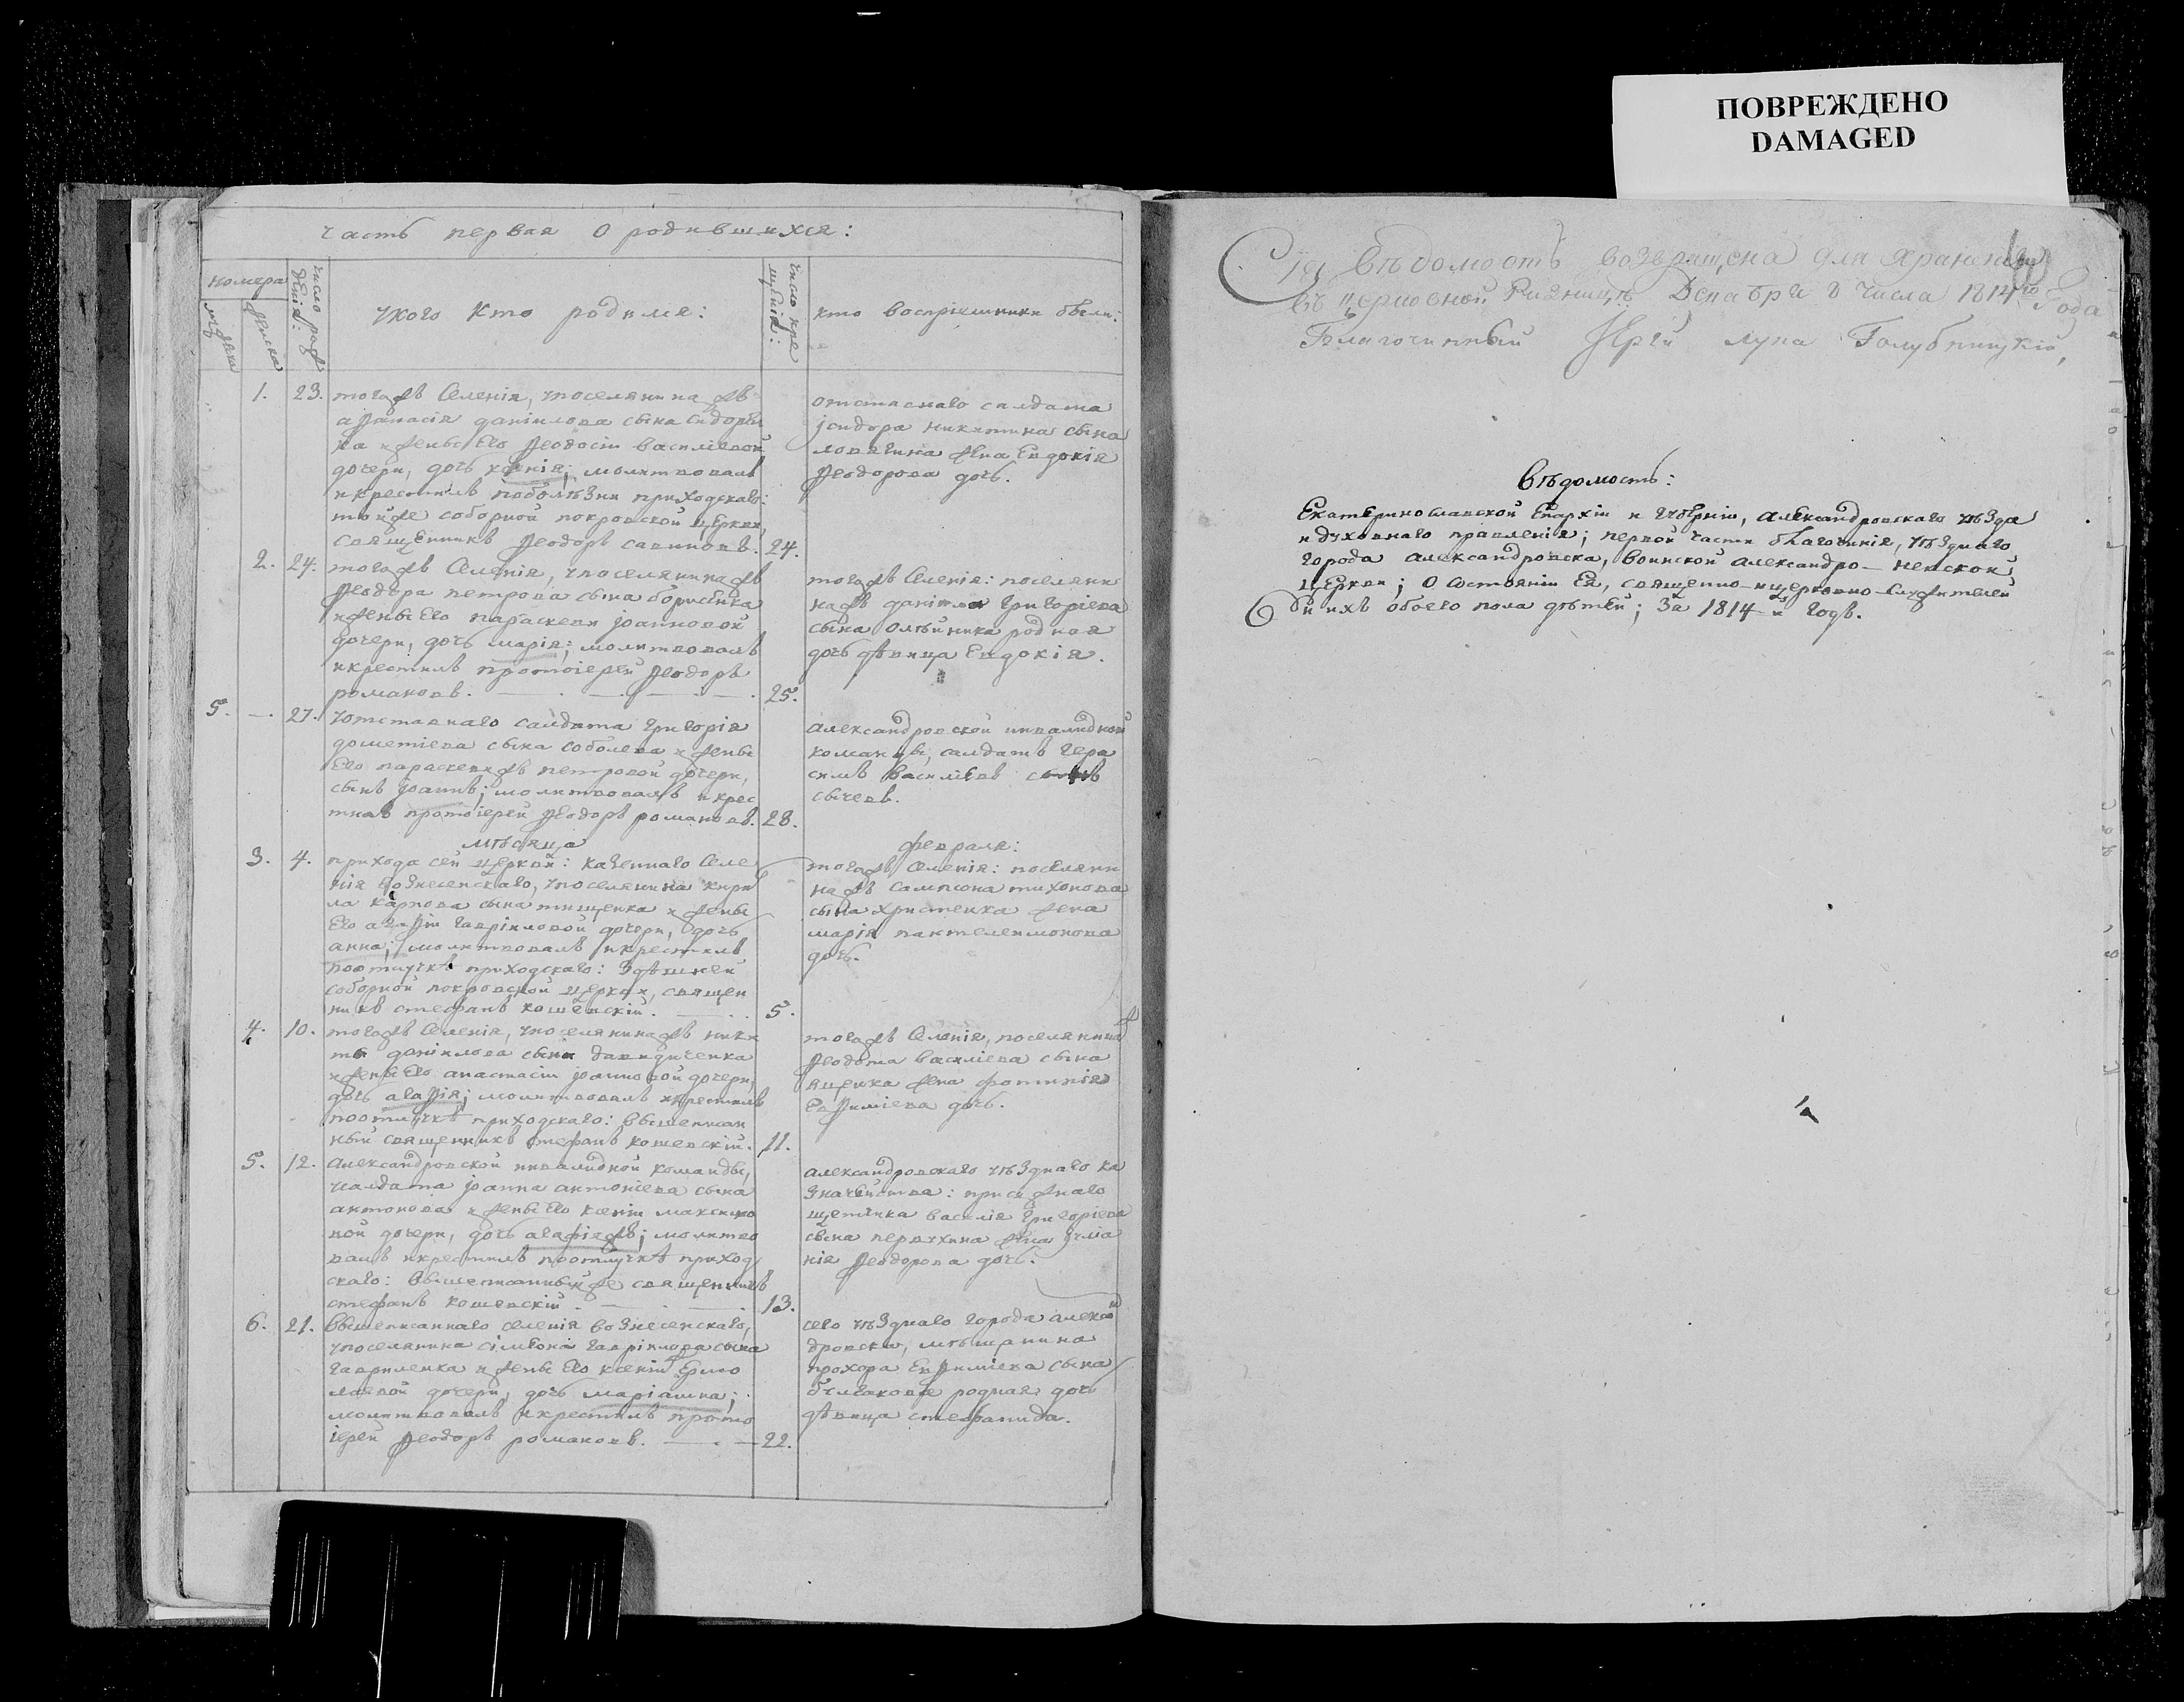 ПОВРЕЖДЕНО
DAMAGED
часть первая о родившихся:
номера
муж
женска
число рожденія:
укого кто родился:
число крещенія:
кто воспріемники были:
1. 23. тогожъ селенія, упоселянина жъ
аѳанасія даніилова сына сидорен
ка и жены его ѳеодосіи василіевой
дочери, дочь ксенія; молитвовалъ
и крестилъ поболѣзни приходскаго:
тойже соборной покровской церкви,
священникъ ѳеодоръ савиновъ. 24.
отставнаго салдата
їсидора никитина сына
ловягина жена евдокія
ѳеодорова дочь.
2. 24. тогожъ селенія, упоселянина жъ
ѳеодора петрова сына борисенка
и жены его параскеви їоанновой
дочери, дочь марія; молитвовалъ
и крестилъ протоіерей ѳеодоръ
романовъ. 25.
тогожъ селенія: поселяни
на жъ даніила григоріева
сына олѣйника родная
дочь дѣвица евдокія.
5. — 27. уотставнаго салдата григорія
дометіева сына соболева и жены
его параскеви жъ петровой дочери,
сынъ їоаннъ; молитвовалъ и крес
тилъ протоіерей ѳеодоръ романовъ. 28.
александровской инвалидной
команды, салдатъ гера
симъ василіевъ сынъ
сычевъ.
мѣсяца февраля:
3. 4. прихода сей церкви: казеннаго селе
нія вознесенскаго, упоселянина кири
ла карпова сына тищенка и жены
его агаѳіи гавріиловой дочери, дочь
анна; молитвовалъ и крестилъ
поотлучкѣ приходскаго: здѣшней
соборной покровской церкви, священ
никъ стефанъ кошевскій. 5.
тогожъ селенія: поселяни
на жъ сампсона тихонова
сына христенка жена
марія пантелеимонова
дочь.
4. 10. тогожъ селенія, упоселянинажъ ники
ты даніилова сына давидиченка
и жены его анастасіи їоанновой дочери,
дочь агаѳія; молитвовалъ и крестилъ
поотлучкѣ приходскаго: вышеписан
ный священникъ стефанъ кошевскій. 11.
тогожъ селенія, поселянина
ѳеодота василіева сына
яценка жена фотинія
евѳиміева дочь.
5. 12. александровской инвалидной команды,
усалдата їоанна антоніева сына
антонова и жены его ксеніи максимо
вой дочери, дочь агафія жъ; молитво
валъ и крестилъ поотлучкѣ приход
скаго: вышеписанныйже священникъ
стефанъ кошевскій. 13.
александровскаго уѣзднаго ка
значейства: присяжнаго
щетчика василія григоріева
сына первухина жена уліа
нія ѳеодорова дочь.
6. 21. вышеписаннаго селенія вознесенскаго,
упоселянина сімеона гавріилова сына
гавриленка и жены его ксеніи ермо
лаевой дочери, дочь маріамна;
молитвовалъ и крестилъ прото
іерей ѳеодоръ романовъ. 22.
сего уѣзднаго города алексан
дровска, мѣщанина
прохора евѳиміева сына
булгакова родная дочь
дѣвица стефанида.
Сія вѣдомость возвращена для храненія
въ церковной ризницѣ Декабря 8 числа 1814го Года
Благочинный Іерей лука Голубницкій,
Вѣдомость:
Екатеринославской Епархіи и губерніи, александровскаго уѣзда
и духовнаго правленія; первой части благочинія, уѣзднаго
города александровска, воинской александро-невской
церкви; о состояніи ея, священно-ицерковно-служителей
и ихъ обоего пола дѣтей; за 1814-й годъ.